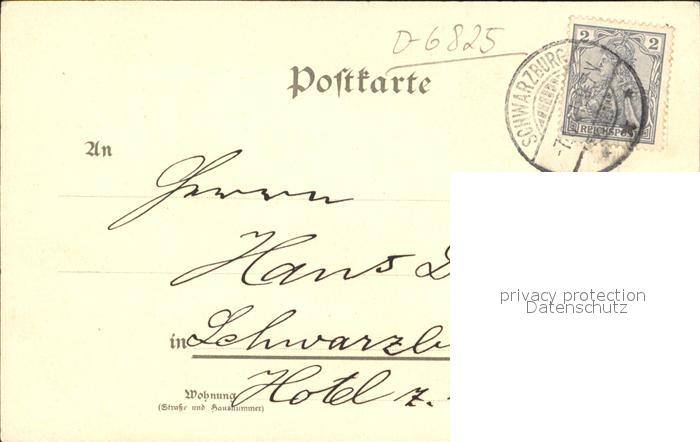 D-6825
Postkarte
SCHWARZBURG
2 2
REICHSPOST
An
Herrn
Hans
in Schwarzb
Wohnung
(Straße und Hausnummer)
Hotel z.
privacy protection
Datenschutz